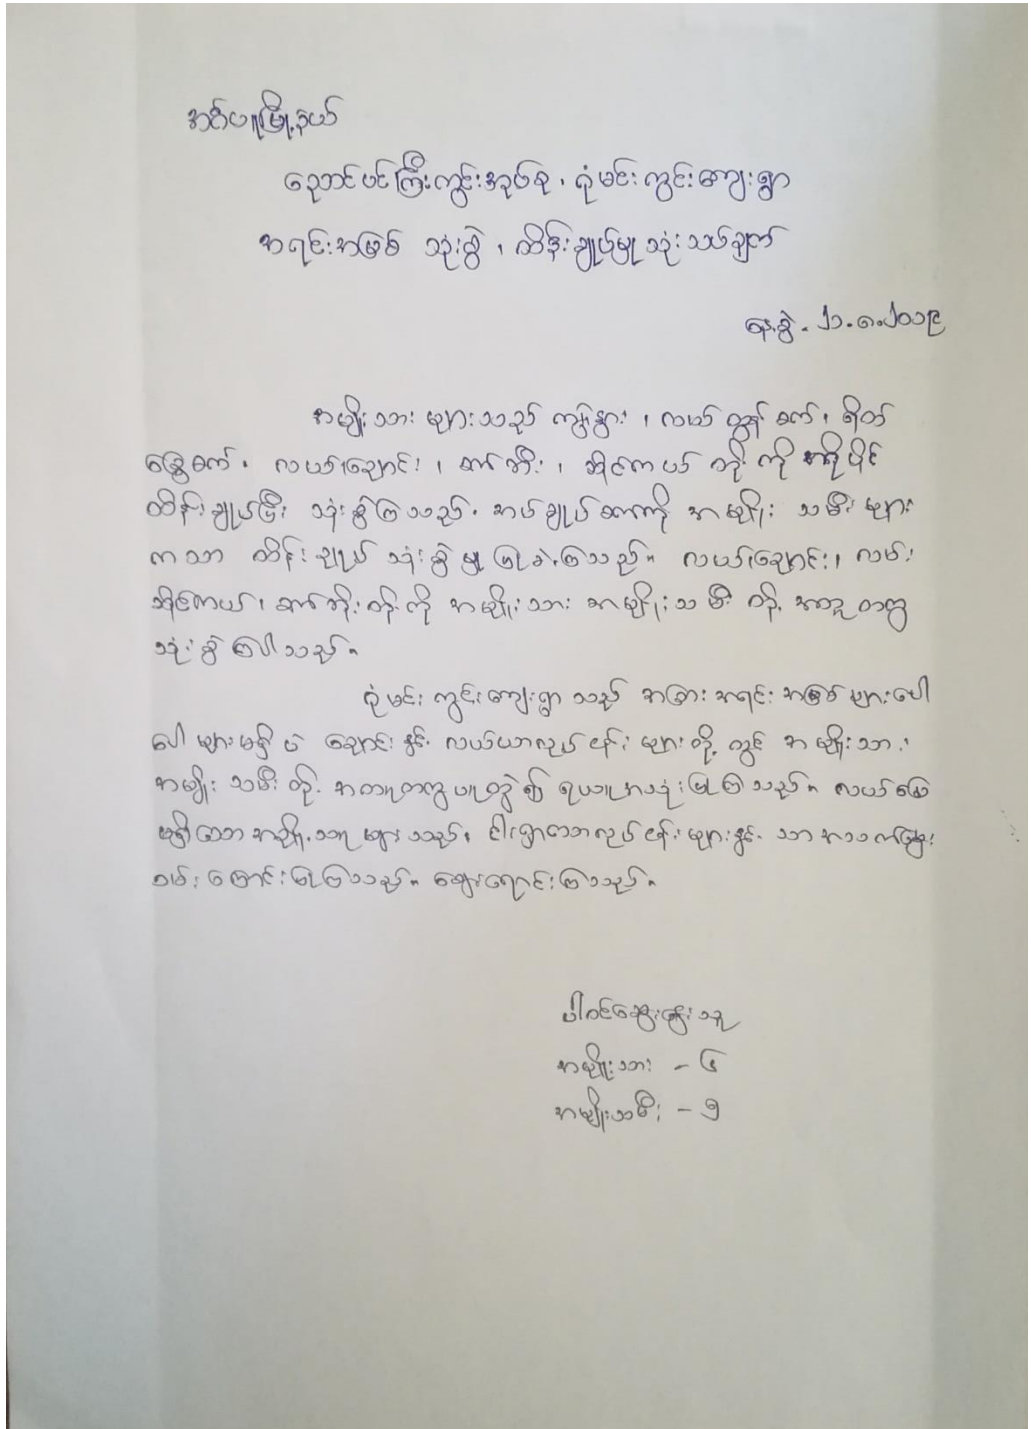 အင်္ဂပူမြို့နယ်
ညောင်ပင်ကြီးကွင်းအုပ်စု၊ ဂုံမင်းကွင်းကျေးရွာ
အရင်းအမြစ် သုံးစွဲ၊ ထိန်းချုပ်မှု သုံးသပ်ချက်
နေ့စွဲ - ၂၁.၈.၂၀၁၉
အမျိုးသား များသည် ကျွဲ၊ နွား၊ လယ်ထွန်စက်၊ ရိတ်
ခြွေစက်၊ လယ်၊ ချောင်း၊ ဆိုင်ကယ် တို့ကို
ထိန်းချုပ်ပြီး သုံးစွဲကြသည်။ အပ်ချုပ်စက်ကို အမျိုး သမီး များ
က သာ ထိန်းချုပ် သုံးစွဲမှု ပြုခဲ့ကြသည်။ လယ်၊ ချောင်း၊ လမ်း
ဆိုင်ကယ်၊ တို့ကို အမျိုးသား အမျိုးသမီး တို့ အတူတကွ
သုံးစွဲကြပါသည်။
ဂုံမင်းကွင်းကျေးရွာ သည် အခြား အရင်း အမြစ် များပေါ
ပေါ များမရှိပဲ ချောင်း နှင့် လယ်ယာလုပ်ငန်း များတို့ တွင် အမျိုးသား၊
အမျိုး သမီး တို့ အတူတကွ ပူးတွဲ၍ ရယူ အသုံးပြုကြသည်။ လယ်မြေ
မရှိသော အမျိုးသား များ သည် ငါးရှာသောလုပ်ငန်းများနှင့် သာ အသက်မွေး
ဝမ်းကြောင်းပြုကြသည်။ ဈေးရောင်းကြသည်။
ပါဝင်ဆွေးနွေးသူ
အမျိုးသား - ၆
အမျိုးသမီး - ၅